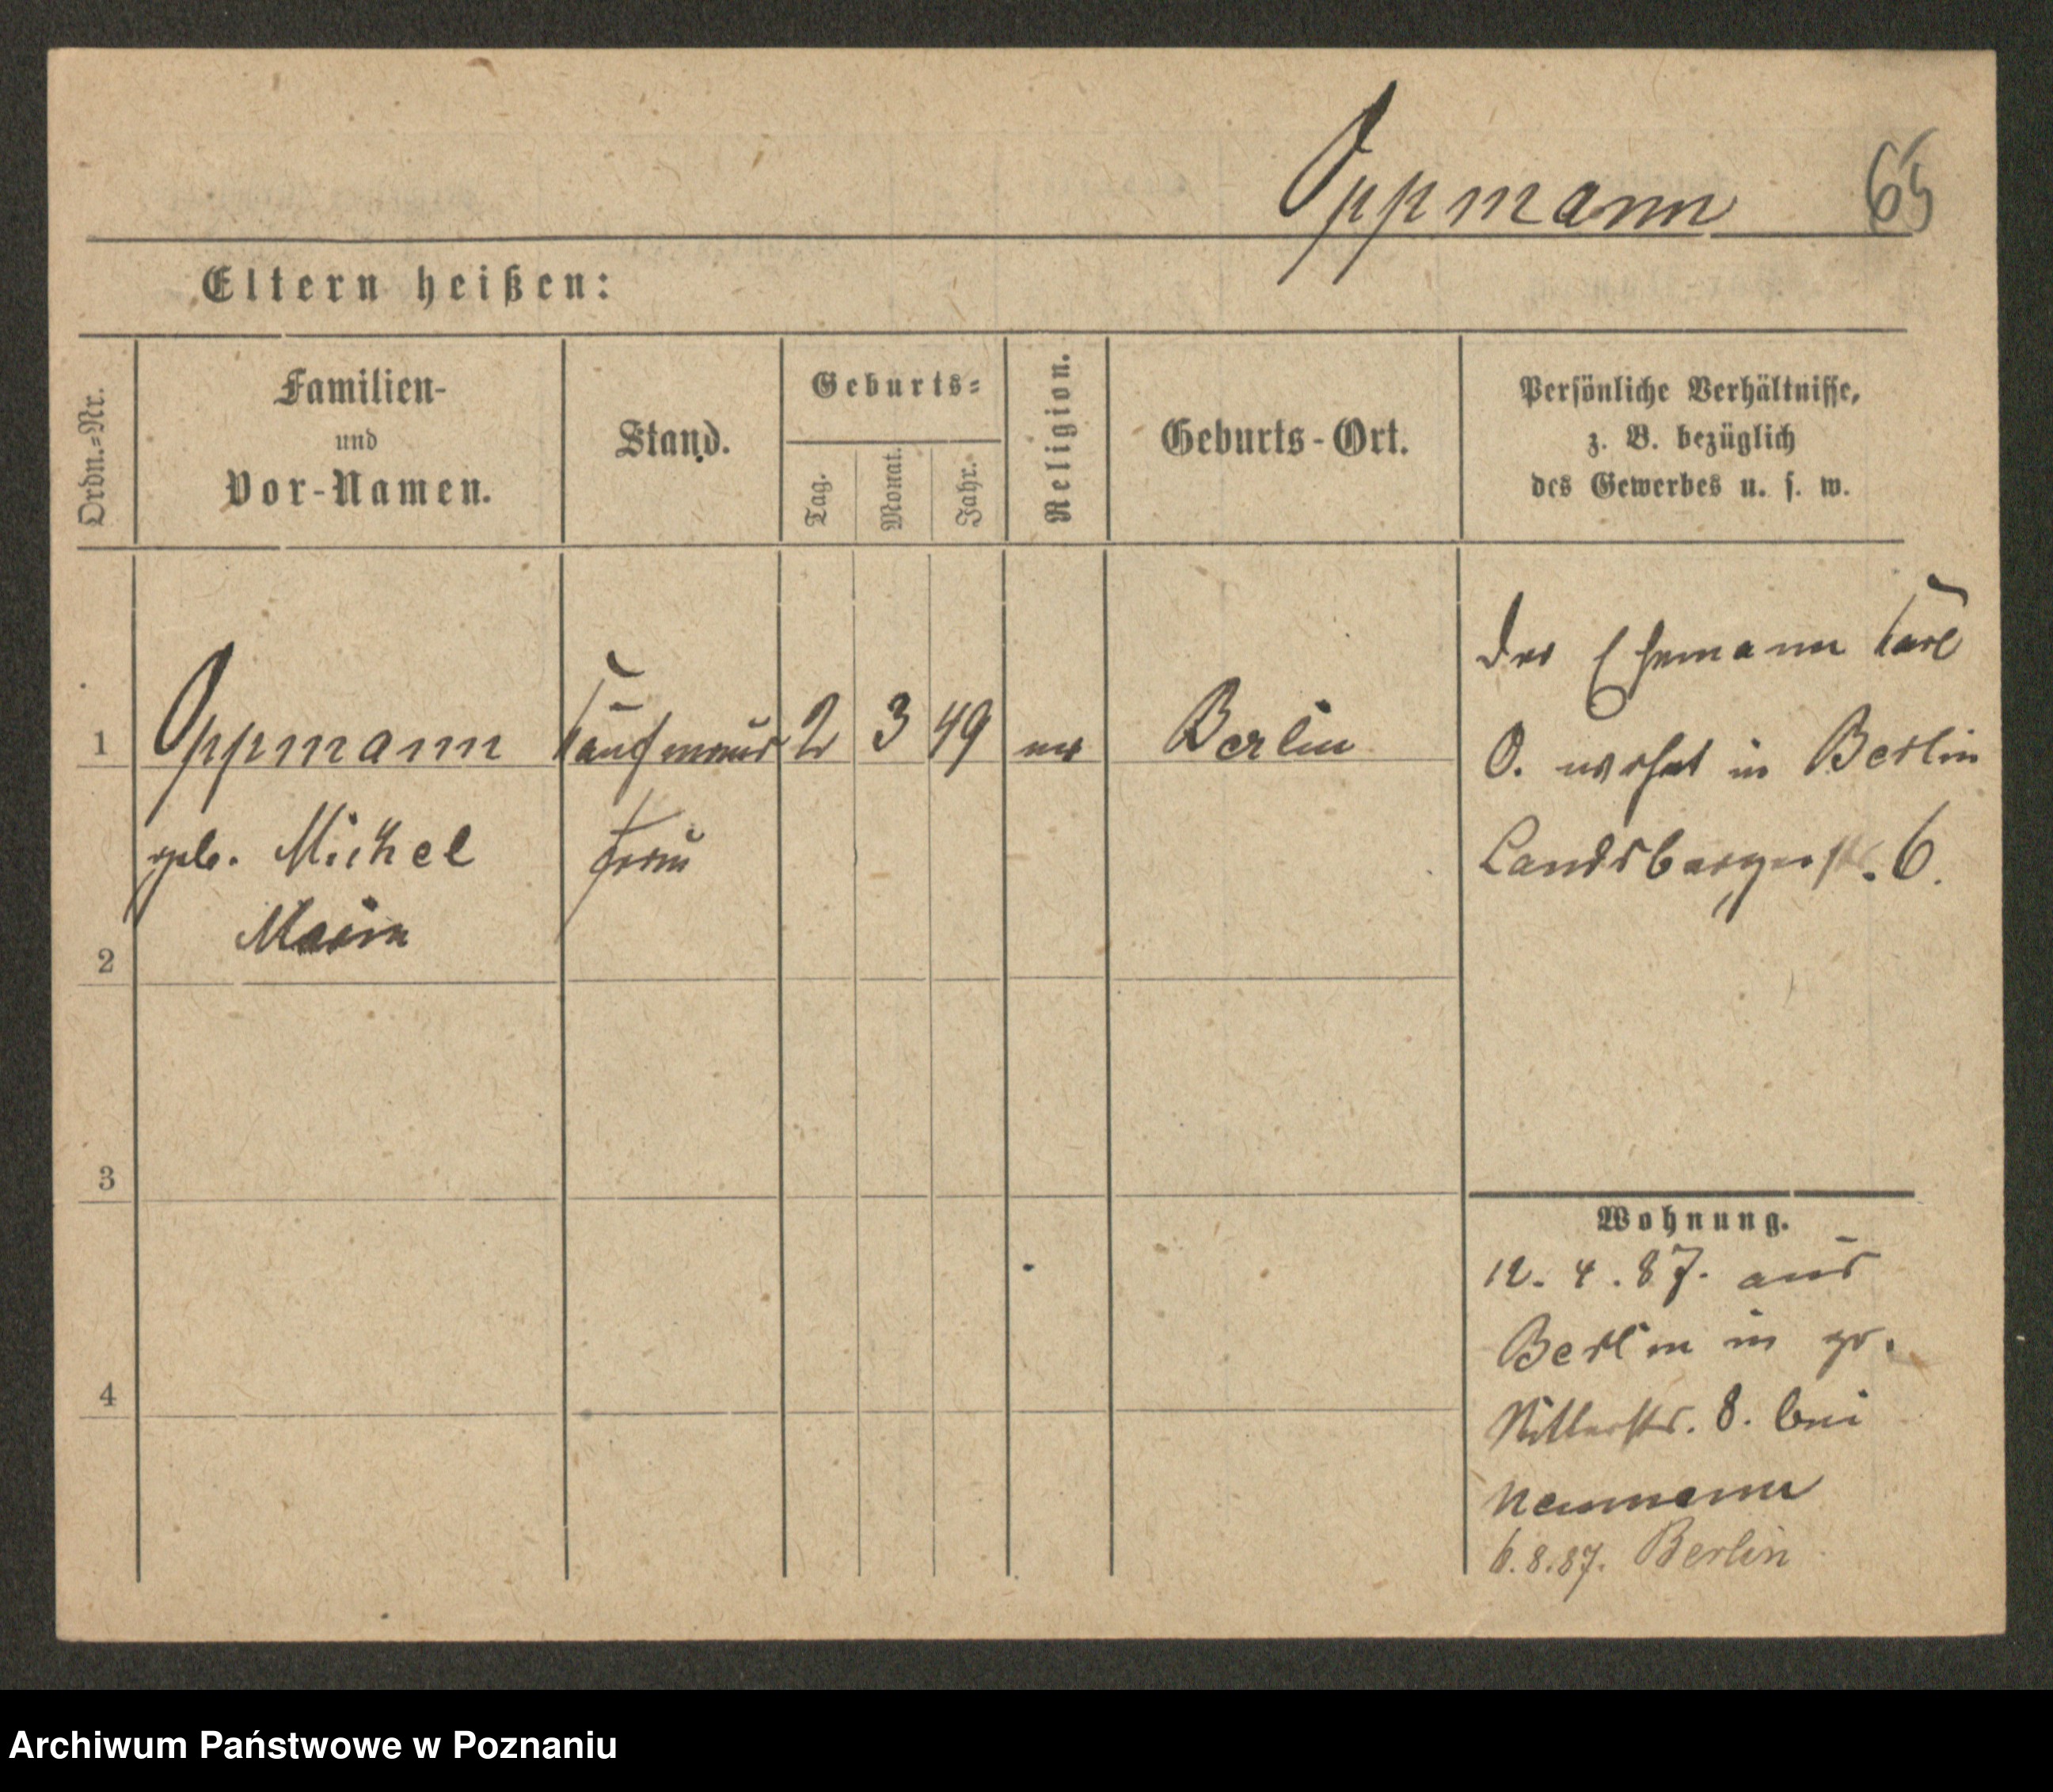 Oppmann 65
Eltern heißen:
Ordn.=Nr.
Familien-
und
Vor-Namen.
Stand.
Geburts=
Tag.
Monat.
Jahr.
Religion.
Geburts-Ort.
Persönliche Verhältnisse,
z. B. bezüglich
des Gewerbes u. s. w.
1 Oppmann Kaufmanns 2 3 49 Berlin
geb. Michel frau
Marie
2
3
4
Der Ehemann Carl
O. wohnt in Berlin
Landsbergerstr. 6.
Wohnung.
12. 4. 87. aus
Berlin in gr.
Ritterstr. 8. bei
Neumann
6.8.87. Berlin
Archiwum Państwowe w Poznaniu